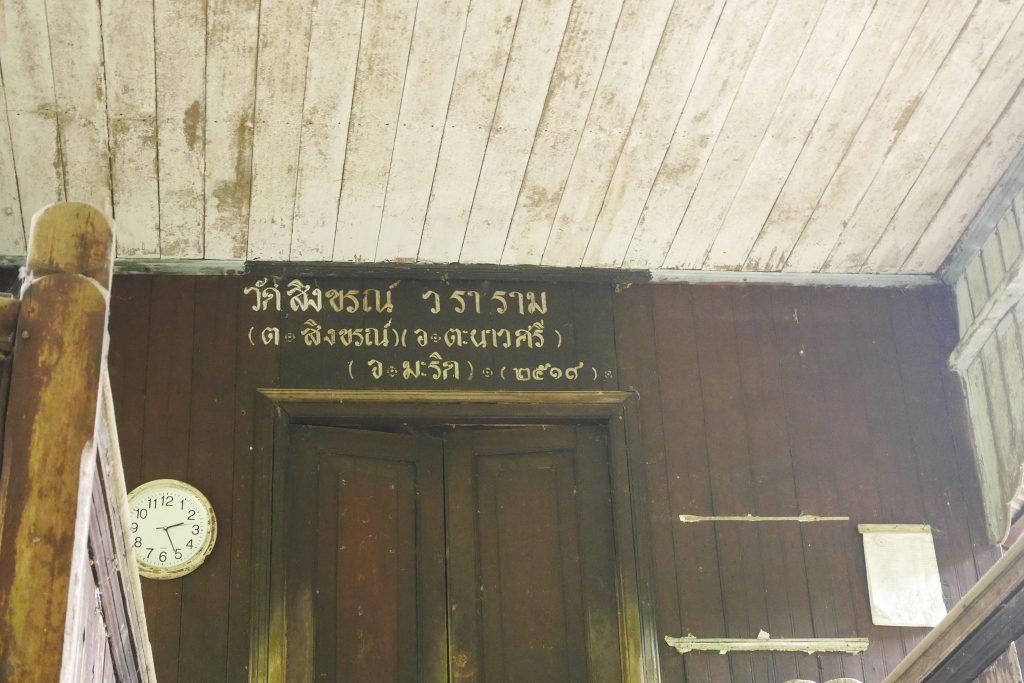 วัดสิงขรณ์ วราราม
(ต. สิงขรณ์)(อ. ตะนาวศรี)
(จ. มะริด). (๒๕๑๙).
12
1
2
3
4
5
6
7
8
9
10
11